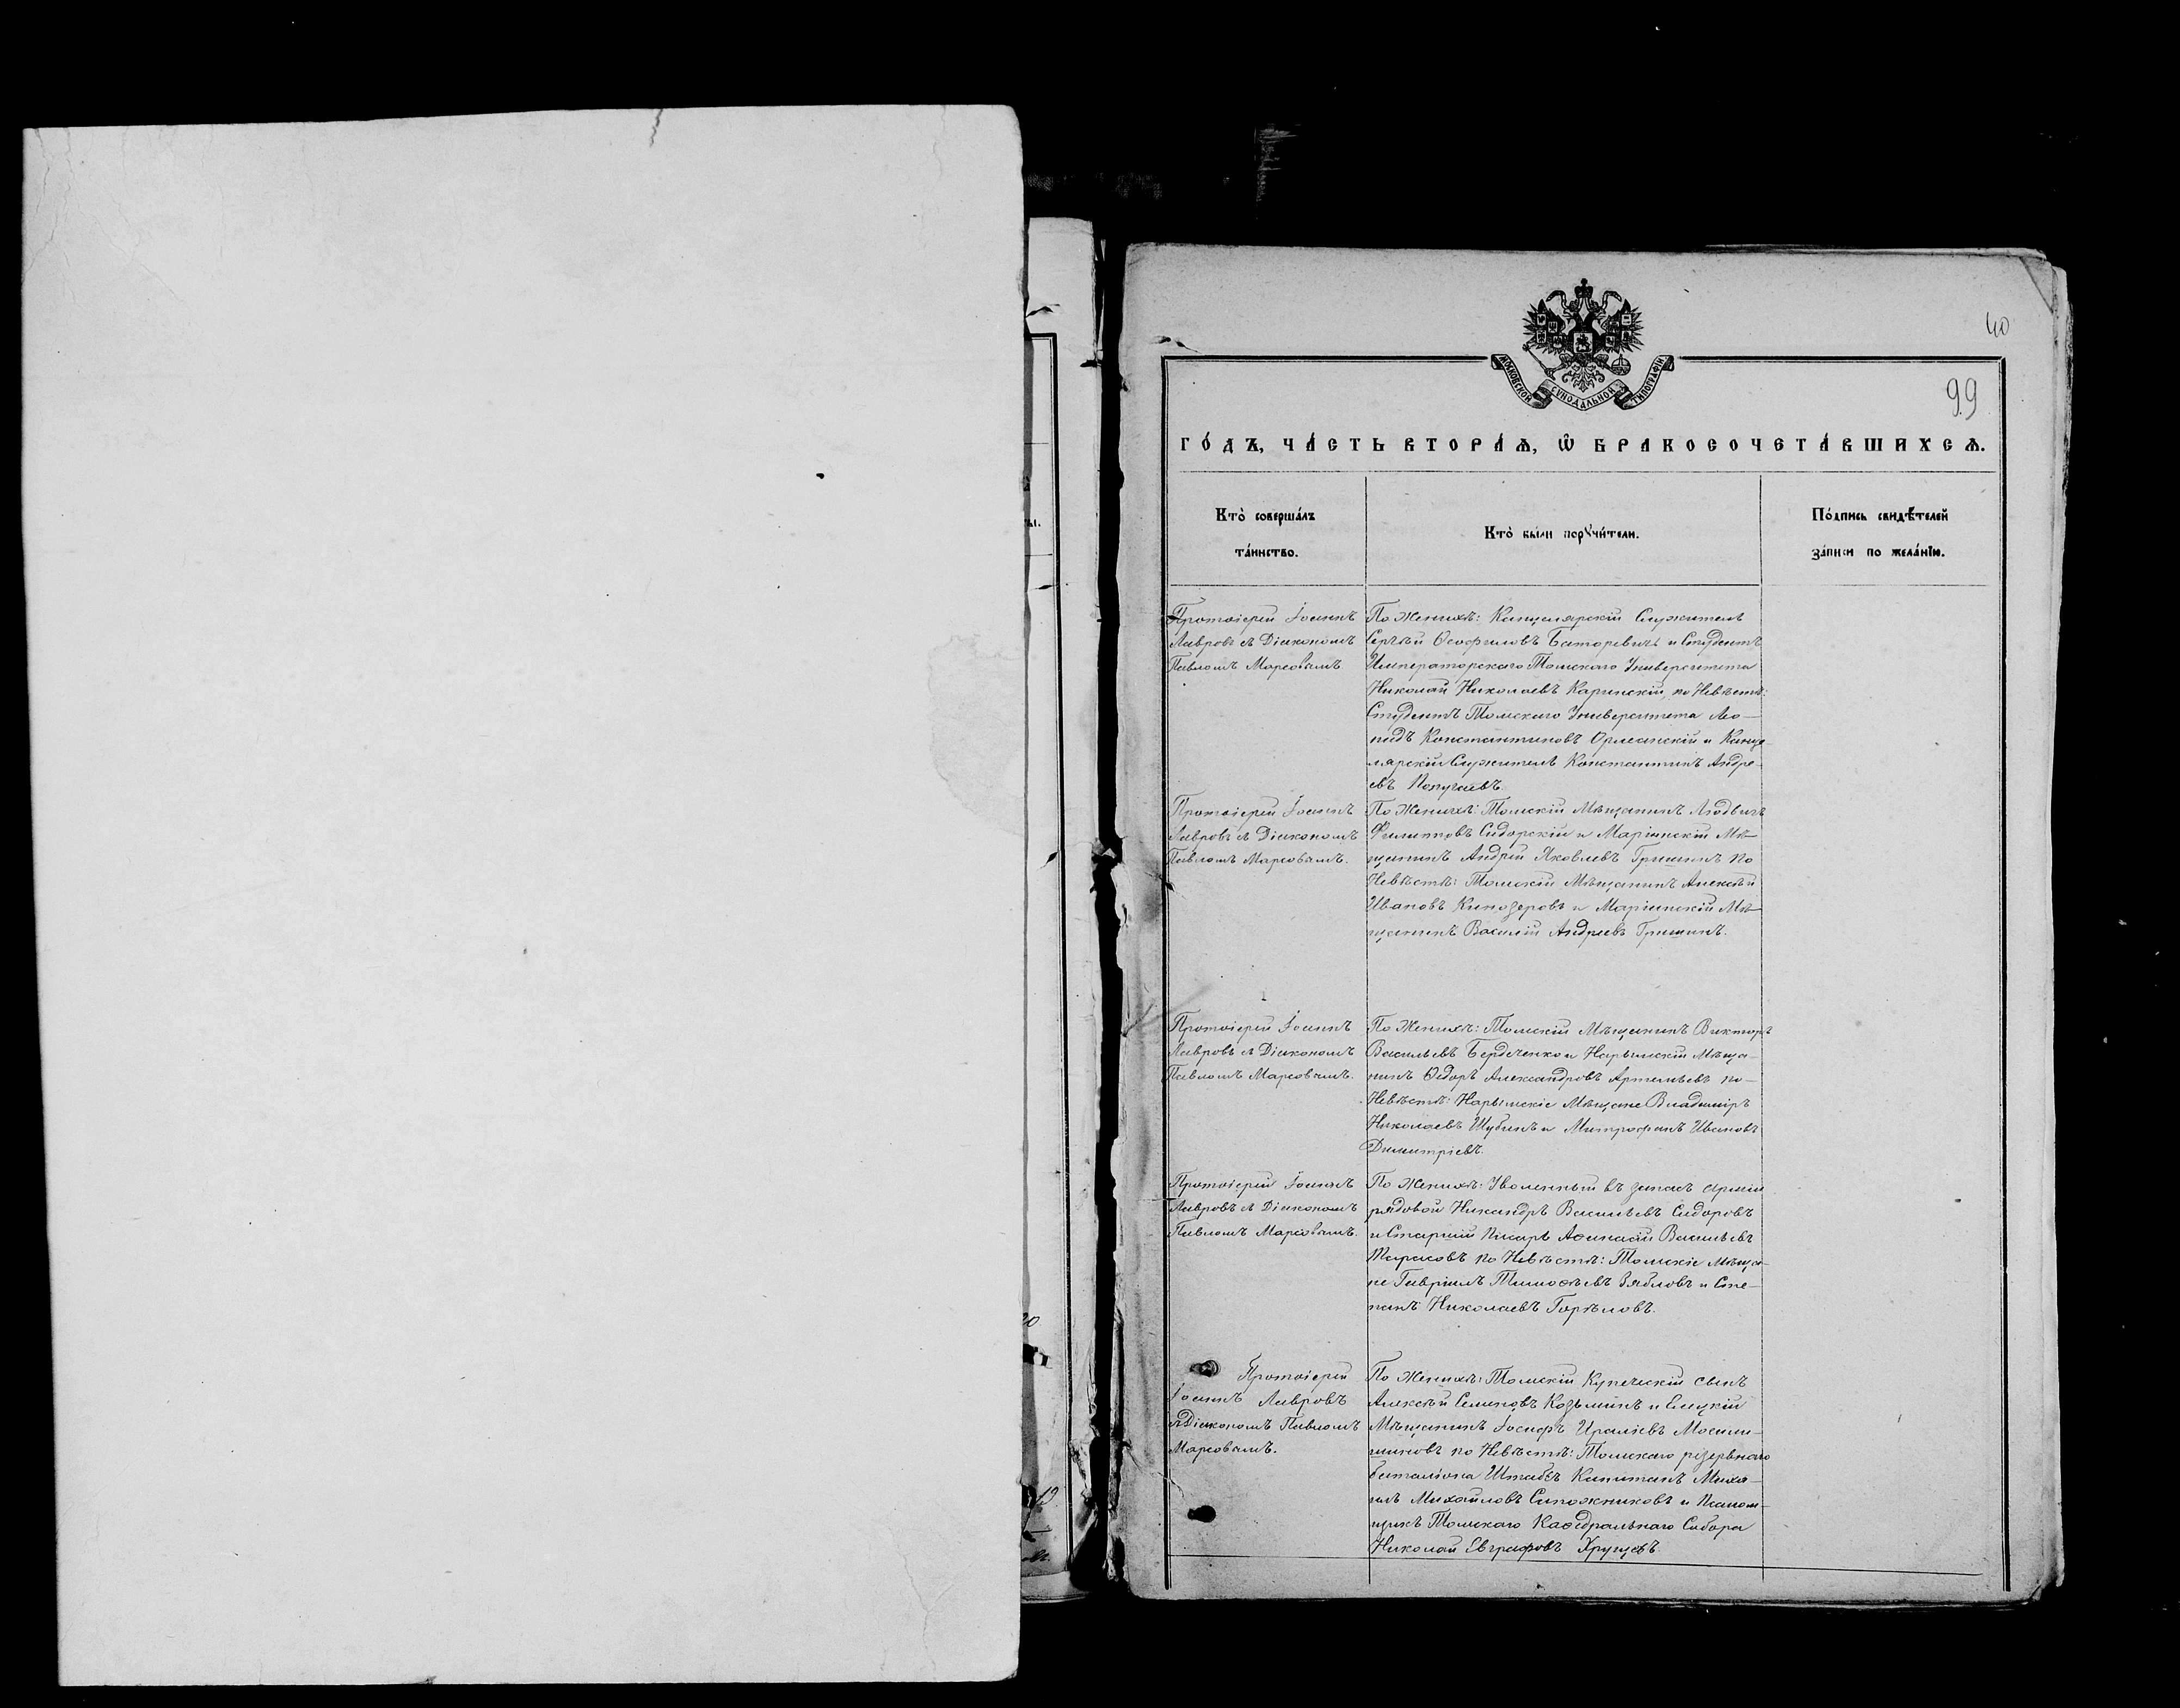 40
МОСКОВСКОЙ СѴНОДАЛЬНОЙ ТИПОГРАФІИ
99
ГО́ДЪ, ЧА́СТЬ ВТОРА́Ѧ, Ѽ БРАКОСОЧЕТА́ВШИХСѦ.
Кто̀ соверша́лъ
та́инство.
Кто̀ бы́ли порꙋчи́тели.
По́дпись свидѣ́телей
за́писи по жела́нїю.
Протоіерей Іоаннъ
Лавровъ съ Діакономъ
Павломъ Марсовымъ
По Женихѣ: Канцелярскій Служитель
Сергѣй Ѳеофиловъ Баторевичъ и Студентъ
Императорскаго Томскаго Университета
Николай Николаевъ Каринскій, по Невѣстѣ:
Студентъ Томскаго Университета Лео-
нидъ Константиновъ Орлеанскій и Канце-
лярскій Служитель Константинъ Андре-
евъ Попугаевъ.
Протоіерей Іоаннъ
Лавровъ съ Діакономъ
Павломъ Марсовымъ.
По Женихѣ: Томскій Мѣщанинъ Людвигъ
Филипповъ Сидорскій и Маріинскій Мѣ-
щанинъ Андрей Яковлевъ Гришинъ по
Невѣстѣ: Томскій Мѣщанинъ Алексѣй
Ивановъ Кинозеровъ и Маріинскій Мѣ-
щанинъ Василій Андреевъ Гришинъ.
Протоіерей Іоаннъ
Лавровъ съ Діакономъ
Павломъ Марсовымъ.
По Женихѣ: Томскій Мѣщанинъ Викторъ
Васильевъ Берденко и Нарымскій Мѣща-
нинъ Ѳедоръ Александровъ Артемьевъ по-
Невѣстѣ: Нарымскіе Мѣщане Владиміръ
Николаевъ Шубинъ и Митрофанъ Ивановъ
Димитріевъ.
Протоіерей Іоаннъ
Лавровъ съ Діакономъ
Павломъ Марсовымъ.
По Женихѣ: Уволенный въ запасъ арміи
рядовой Никандръ Васильевъ Сидоровъ
и Старшій Писарь Аѳанасій Васильевъ
Тарасовъ по Невѣстѣ: Томскіе Мѣща-
не Гавріилъ Тимоѳѣевъ Зябловъ и Сте-
панъ Николаевъ Горѣловъ.
Протоіерей
Іоаннъ Лавровъ
съ Діакономъ Павломъ
Марсовымъ.
По Женихѣ: Томскій Купеческій сынъ
Алексѣй Семеновъ Козьминъ и Елецкій
Мѣщанинъ Іосифъ
по Невѣстѣ: Томскаго резервнаго
баталіона Штабсъ Капитанъ Миха-
илъ Михайловъ Сапожниковъ и Псалом-
щикъ Томскаго Каѳедральнаго Собора
Николай Евграфовъ Хрущевъ